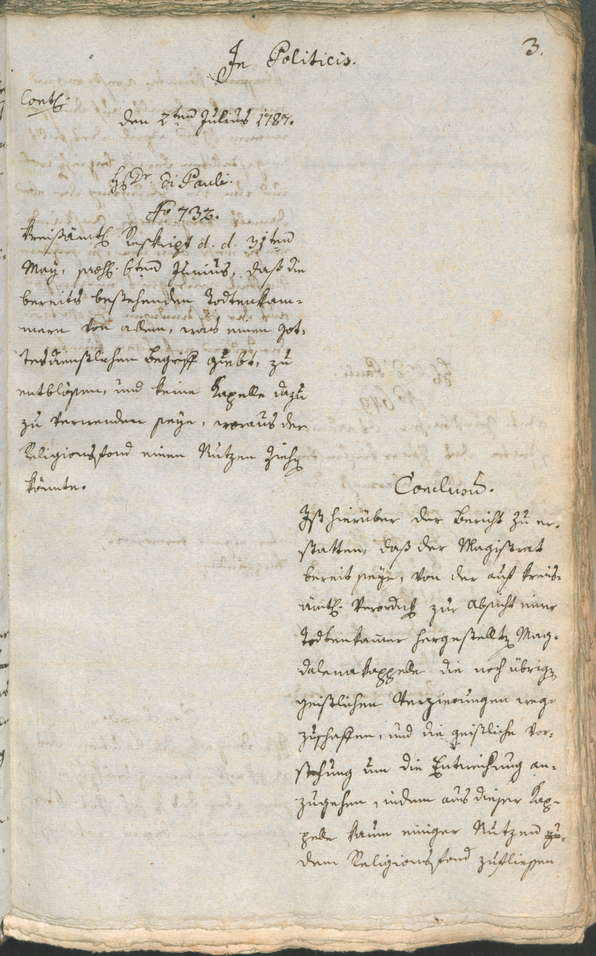 In Politicis.
3.
Conts:
den 2ten Julius 1787.
H: Dr di Pauli.
No 732.
Kreißämtl: Reskript d. d. 31ten
May, præs: 6ten Junius, daß die
bereits bestehenden Todtenkam¬
mern von allem, was einen Got¬
tesdienstlichen Begriff giebt, zu
entblössen, und keine Kapelle dazu
zu verwenden seye, woraus der
Religionsfond einen Nutzen ziehen
könnte.
Conclusum.
Ist hierüber der Bericht zu er¬
statten, daß der Magistrat
bereit seye, von der auf kreis¬
ämtl: Verordng zur Absicht einer
Todtenkammer hergestellten Mag¬
dalenakappelle die noch übrigen
geistlichen Verzierungen weg¬
zuschaffen, und die geistliche Vor¬
stehung um die Entweihung an¬
zugehen, indem aus dieser Kap¬
pelle kaum einiger Nutzen
dem Religionsfond zufliessen